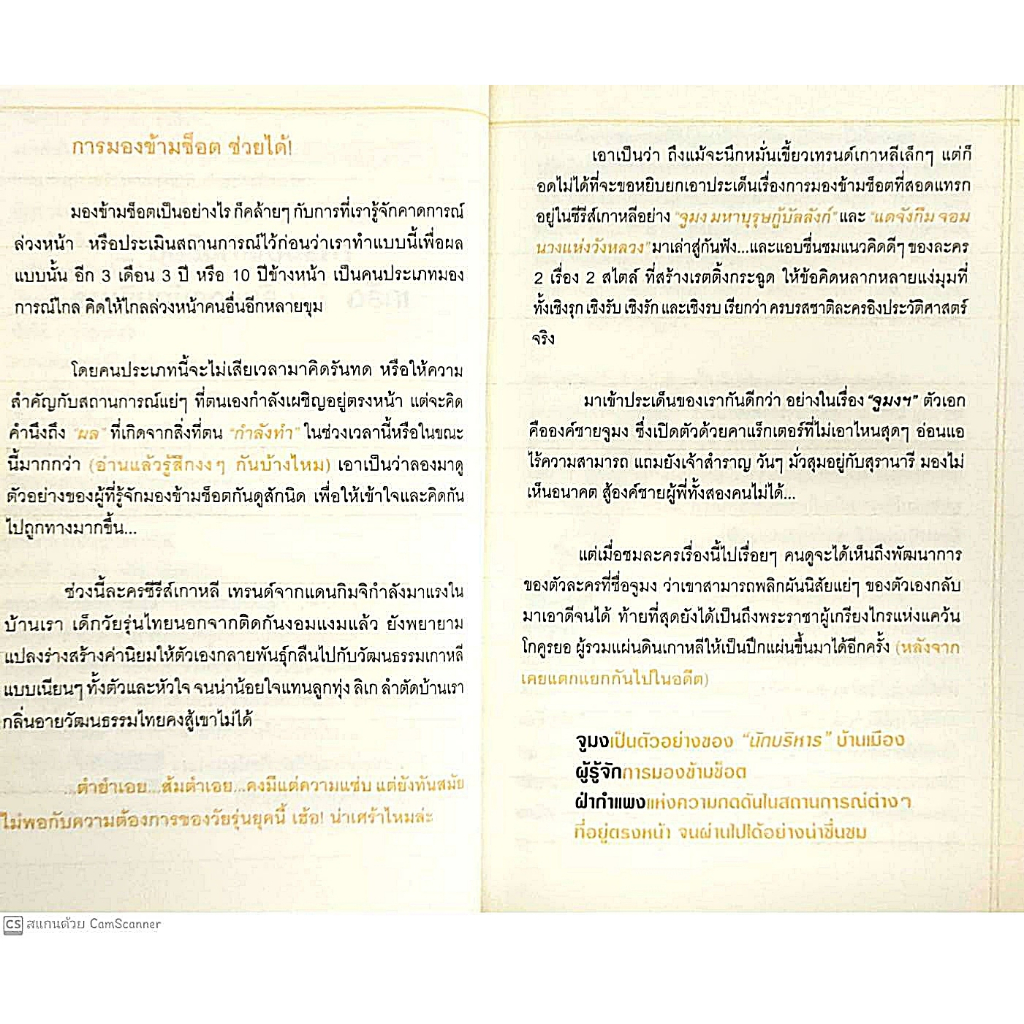 การมองข้ามช็อต ช่วยได้!
มองข้ามช็อตเป็นอย่างไร ก็คล้ายๆ กับการที่เรารู้จักคาดการณ์
ล่วงหน้า หรือประเมินสถานการณ์ไว้ก่อนว่าเราทำแบบนี้เพื่อผล
แบบนั้น อีก 3 เดือน 3 ปี หรือ 10 ปีข้างหน้า เป็นคนประเภทมอง
การณ์ไกล คิดให้ไกลล่วงหน้าคนอื่นอีกหลายขุม
โดยคนประเภทนี้จะไม่เสียเวลามาคิดรันทด หรือให้ความ
สำคัญกับสถานการณ์แย่ๆ ที่ตนเองกำลังเผชิญอยู่ตรงหน้า แต่จะคิด
คำนึงถึง "ผล" ที่เกิดจากสิ่งที่ตน "กำลังทำ" ในช่วงเวลานี้หรือในขณะ
นี้มากกว่า (อ่านแล้วรู้สึกงงๆ กันบ้างไหม) เอาเป็นว่าลองมาดู
ตัวอย่างของผู้ที่รู้จักมองข้ามช็อตกันดูสักนิด เพื่อให้เข้าใจและคิดกัน
ไปถูกทางมากขึ้น...
ช่วงนี้ละครซีรีส์เกาหลี เทรนด์จากแดนกิมจิกำลังมาแรงใน
บ้านเรา เด็กวัยรุ่นไทยนอกจากติดกันงอมแงมแล้ว ยังพยายาม
แปลงร่างสร้างค่านิยมให้ตัวเองกลายพันธุ์กลืนไปกับวัฒนธรรมเกาหลี
แบบเนียนๆ ทั้งตัวและหัวใจ จนน่าน้อยใจแทนลูกทุ่ง ลิเก ลำตัดบ้านเรา
กลิ่นอายวัฒนธรรมไทยคงสู้เขาไม่ได้
...ตำยำเอย...ส้มตำเอย...คงมีแต่ความแซ่บ แต่ยังทันสมัย
ไม่พอกับความต้องการของวัยรุ่นยุคนี้ เฮ้อ! น่าเศร้าไหมล่ะ
เอาเป็นว่า ถึงแม้จะนึกหมั่นเขี้ยวเทรนด์เกาหลีเล็กๆ แต่ก็
อดไม่ได้ที่จะขอหยิบยกเอาประเด็นเรื่องการมองข้ามช็อตที่สอดแทรก
อยู่ในซีรีส์เกาหลีอย่าง "จูมง มหาบุรุษกู้บัลลังก์" และ "แดจังกึม จอม
นางแห่งวังหลวง" มาเล่าสู่กันฟัง...และแอบชื่นชมแนวคิดดีๆ ของละคร
2 เรื่อง 2 สไตล์ ที่สร้างเรตติ้งกระฉูด ให้ข้อคิดหลากหลายแง่มุมที่
ทั้งเชิงรุก เชิงรับ เชิงรัก และเชิงรบ เรียกว่า ครบรสชาติละครอิงประวัติศาสตร์
จริง
มาเข้าประเด็นของเรากันดีกว่า อย่างในเรื่อง "จูมงฯ" ตัวเอก
คือองค์ชายจูมง ซึ่งเปิดตัวด้วยคาแร็กเตอร์ที่ไม่เอาไหนสุดๆ อ่อนแอ
ไร้ความสามารถ แถมยังเจ้าสำราญ วันๆ มั่วสุมอยู่กับสุรานารี มองไม่
เห็นอนาคต สู้องค์ชายผู้พี่ทั้งสองคนไม่ได้...
แต่เมื่อชมละครเรื่องนี้ไปเรื่อยๆ คนดูจะได้เห็นถึงพัฒนาการ
ของตัวละครที่ชื่อจูมง ว่าเขาสามารถพลิกผันนิสัยแย่ๆ ของตัวเองกลับ
มาเอาดีจนได้ ท้ายที่สุดยังได้เป็นถึงพระราชาผู้เกรียงไกรแห่งแคว้น
โกคูรยอ ผู้รวมแผ่นดินเกาหลีให้เป็นปึกแผ่นขึ้นมาได้อีกครั้ง (หลังจาก
เคยแตกแยกกันไปในอดีต)
จูมงเป็นตัวอย่างของ "นักบริหาร" บ้านเมือง
ผู้รู้จักการมองข้ามช็อต
ฝ่ากำแพงแห่งความกดดันในสถานการณ์ต่างๆ
ที่อยู่ตรงหน้า จนผ่านไปได้อย่างน่าชื่นชม
CS สแกนด้วย CamScanner